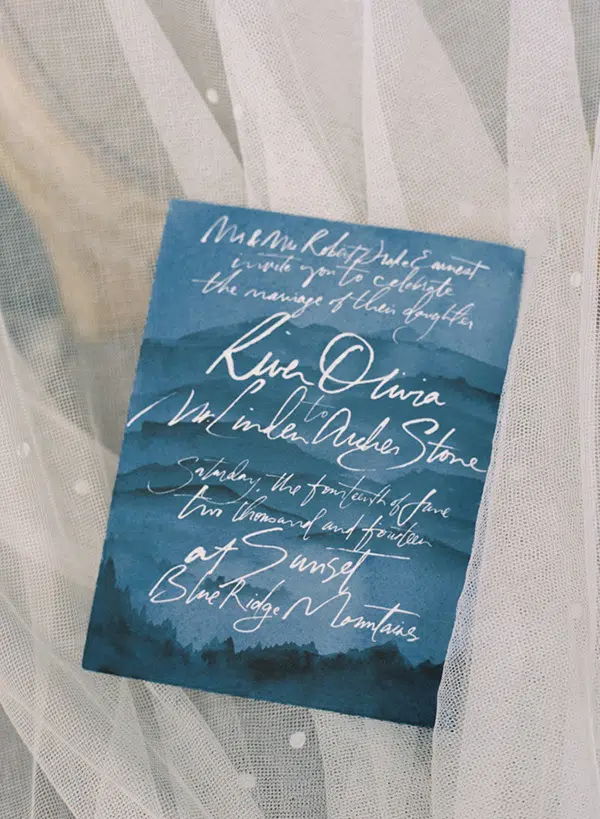 Mr & Mrs Robert Drake Earnest
invite you to celebrate
the marriage of their daughter
River Olivia
to
Mr. Linden Archer Stone
Saturday, the fourteenth of June
two thousand and fourteen
at Sunset
Blue Ridge Mountains